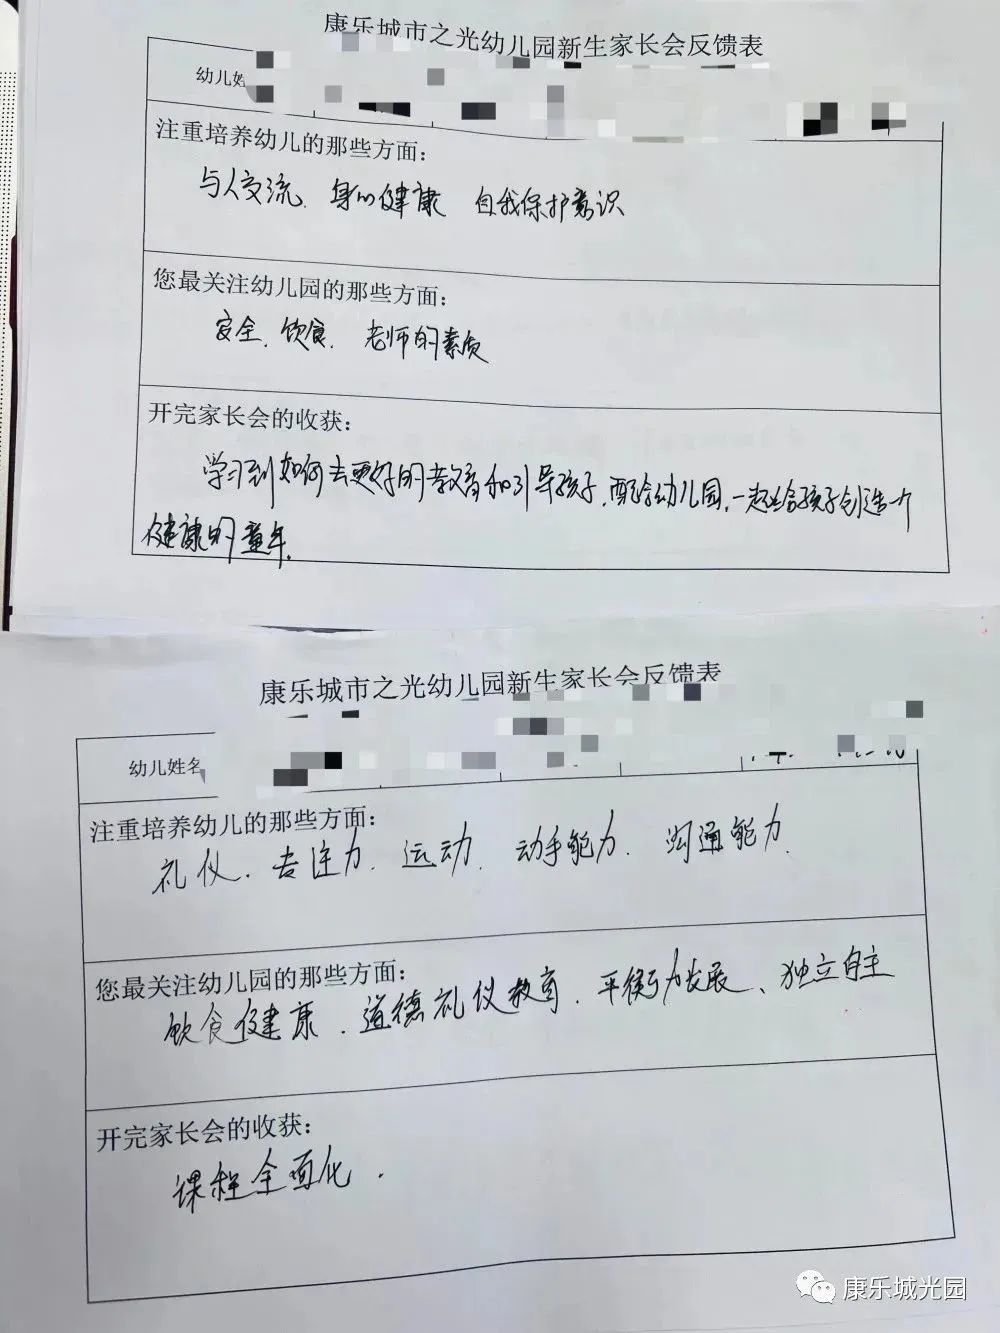 康乐城市之光幼儿园新生家长会反馈表
幼儿姓
注重培养幼儿的那些方面：
与人交流、身心健康 自我保护意识
您最关注幼儿园的那些方面：
安全、饮食、老师的素质
开完家长会的收获：
学习到如何去更好的教育和引导孩子，配合幼儿园，一起给孩子创造一个
健康的童年。
康乐城市之光幼儿园新生家长会反馈表
幼儿姓名
注重培养幼儿的那些方面：
礼仪、专注力、运动、动手能力、沟通能力
您最关注幼儿园的那些方面：
饮食健康、道德礼仪教育、平衡力发展、独立自主
开完家长会的收获：
课程全面化.
康乐城光园